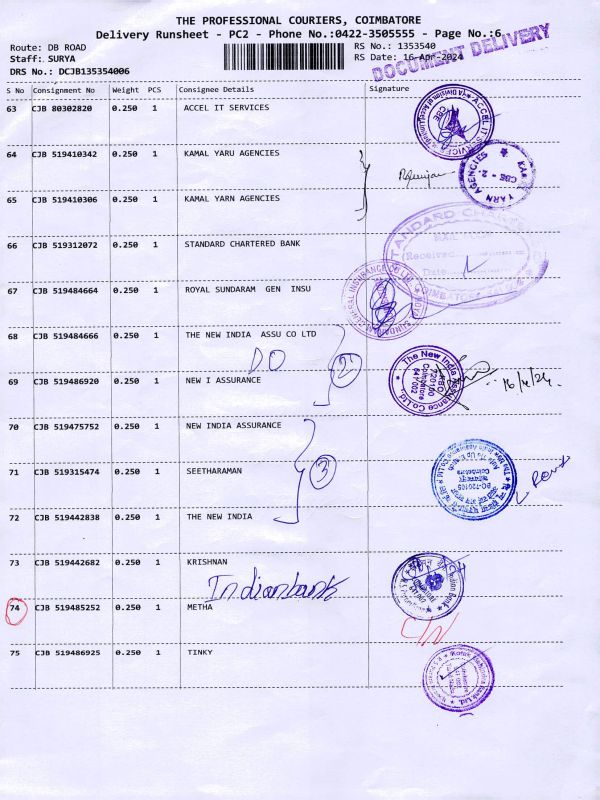 THE PROFESSIONAL COURIERS, COIMBATORE
Delivery Runsheet - PC2 - Phone No.:0422-3505555 - Page No.:6
Route: DB ROAD
RS No.: 1353540
Staff: SURYA
RS Date: 16-Apr-2024
DRS No.: DCJB135354006
DOCUMENT DELIVERY
S No Consignment No Weight PCS Consignee Details Signature
63 CJB 80302820 0.250 1 ACCEL IT SERVICES
64 CJB 519410342 0.250 1 KAMAL YARU AGENCIES
65 CJB 519410306 0.250 1 KAMAL YARN AGENCIES
66 CJB 519312072 0.250 1 STANDARD CHARTERED BANK
67 CJB 519484664 0.250 1 ROYAL SUNDARAM GEN INSU
68 CJB 519484666 0.250 1 THE NEW INDIA ASSU CO LTD
DO
2
69 CJB 519486920 0.250 1 NEW I ASSURANCE
The New India Assurance Co Ltd
720100
Coimbatore
641 002
16/4/24
70 CJB 519475752 0.250 1 NEW INDIA ASSURANCE
71 CJB 519315474 0.250 1 SEETHARAMAN
3
72 CJB 519442838 0.250 1 THE NEW INDIA
73 CJB 519442682 0.250 1 KRISHNAN
Indianbank
74 CJB 519485252 0.250 1 METHA
75 CJB 519486925 0.250 1 TINKY